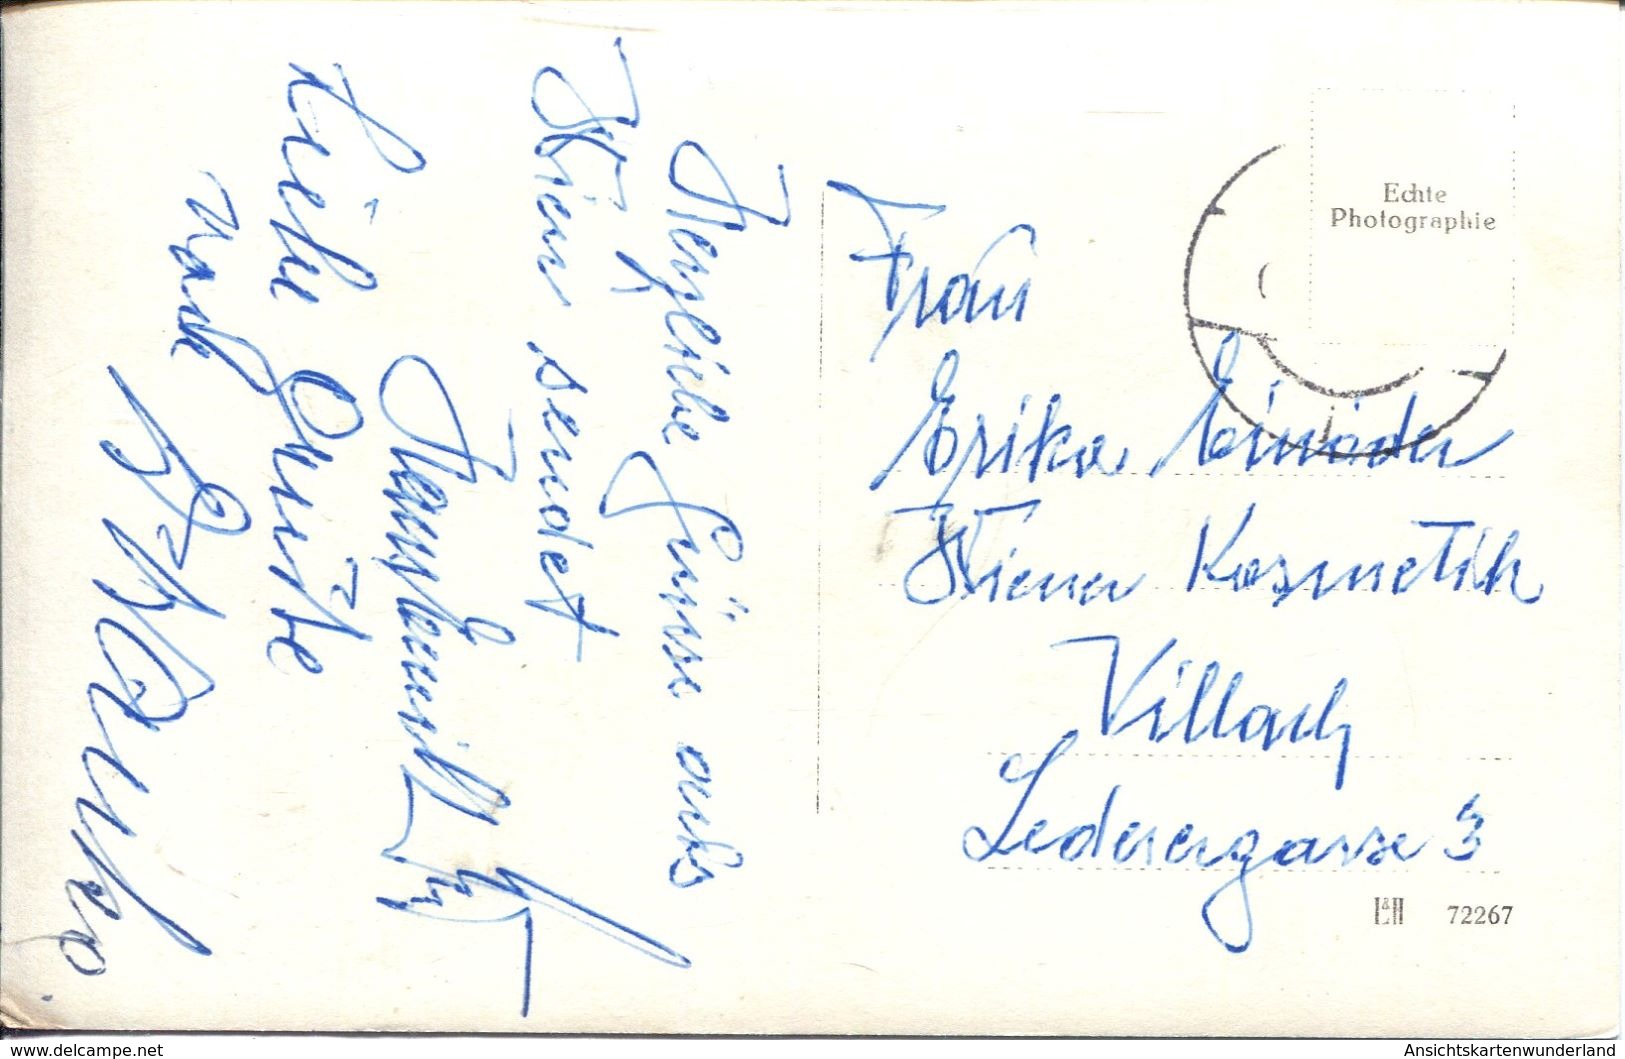 Herzliche Grüsse aus
Wien sendet
Liebe Grüße
Frau
Erika Einöder
Wiener Kosmetik
Villach
Lederergasse 3
Echte
Photographie
L&H 72267
www.delcampe.net
Ansichtskartenwunderland